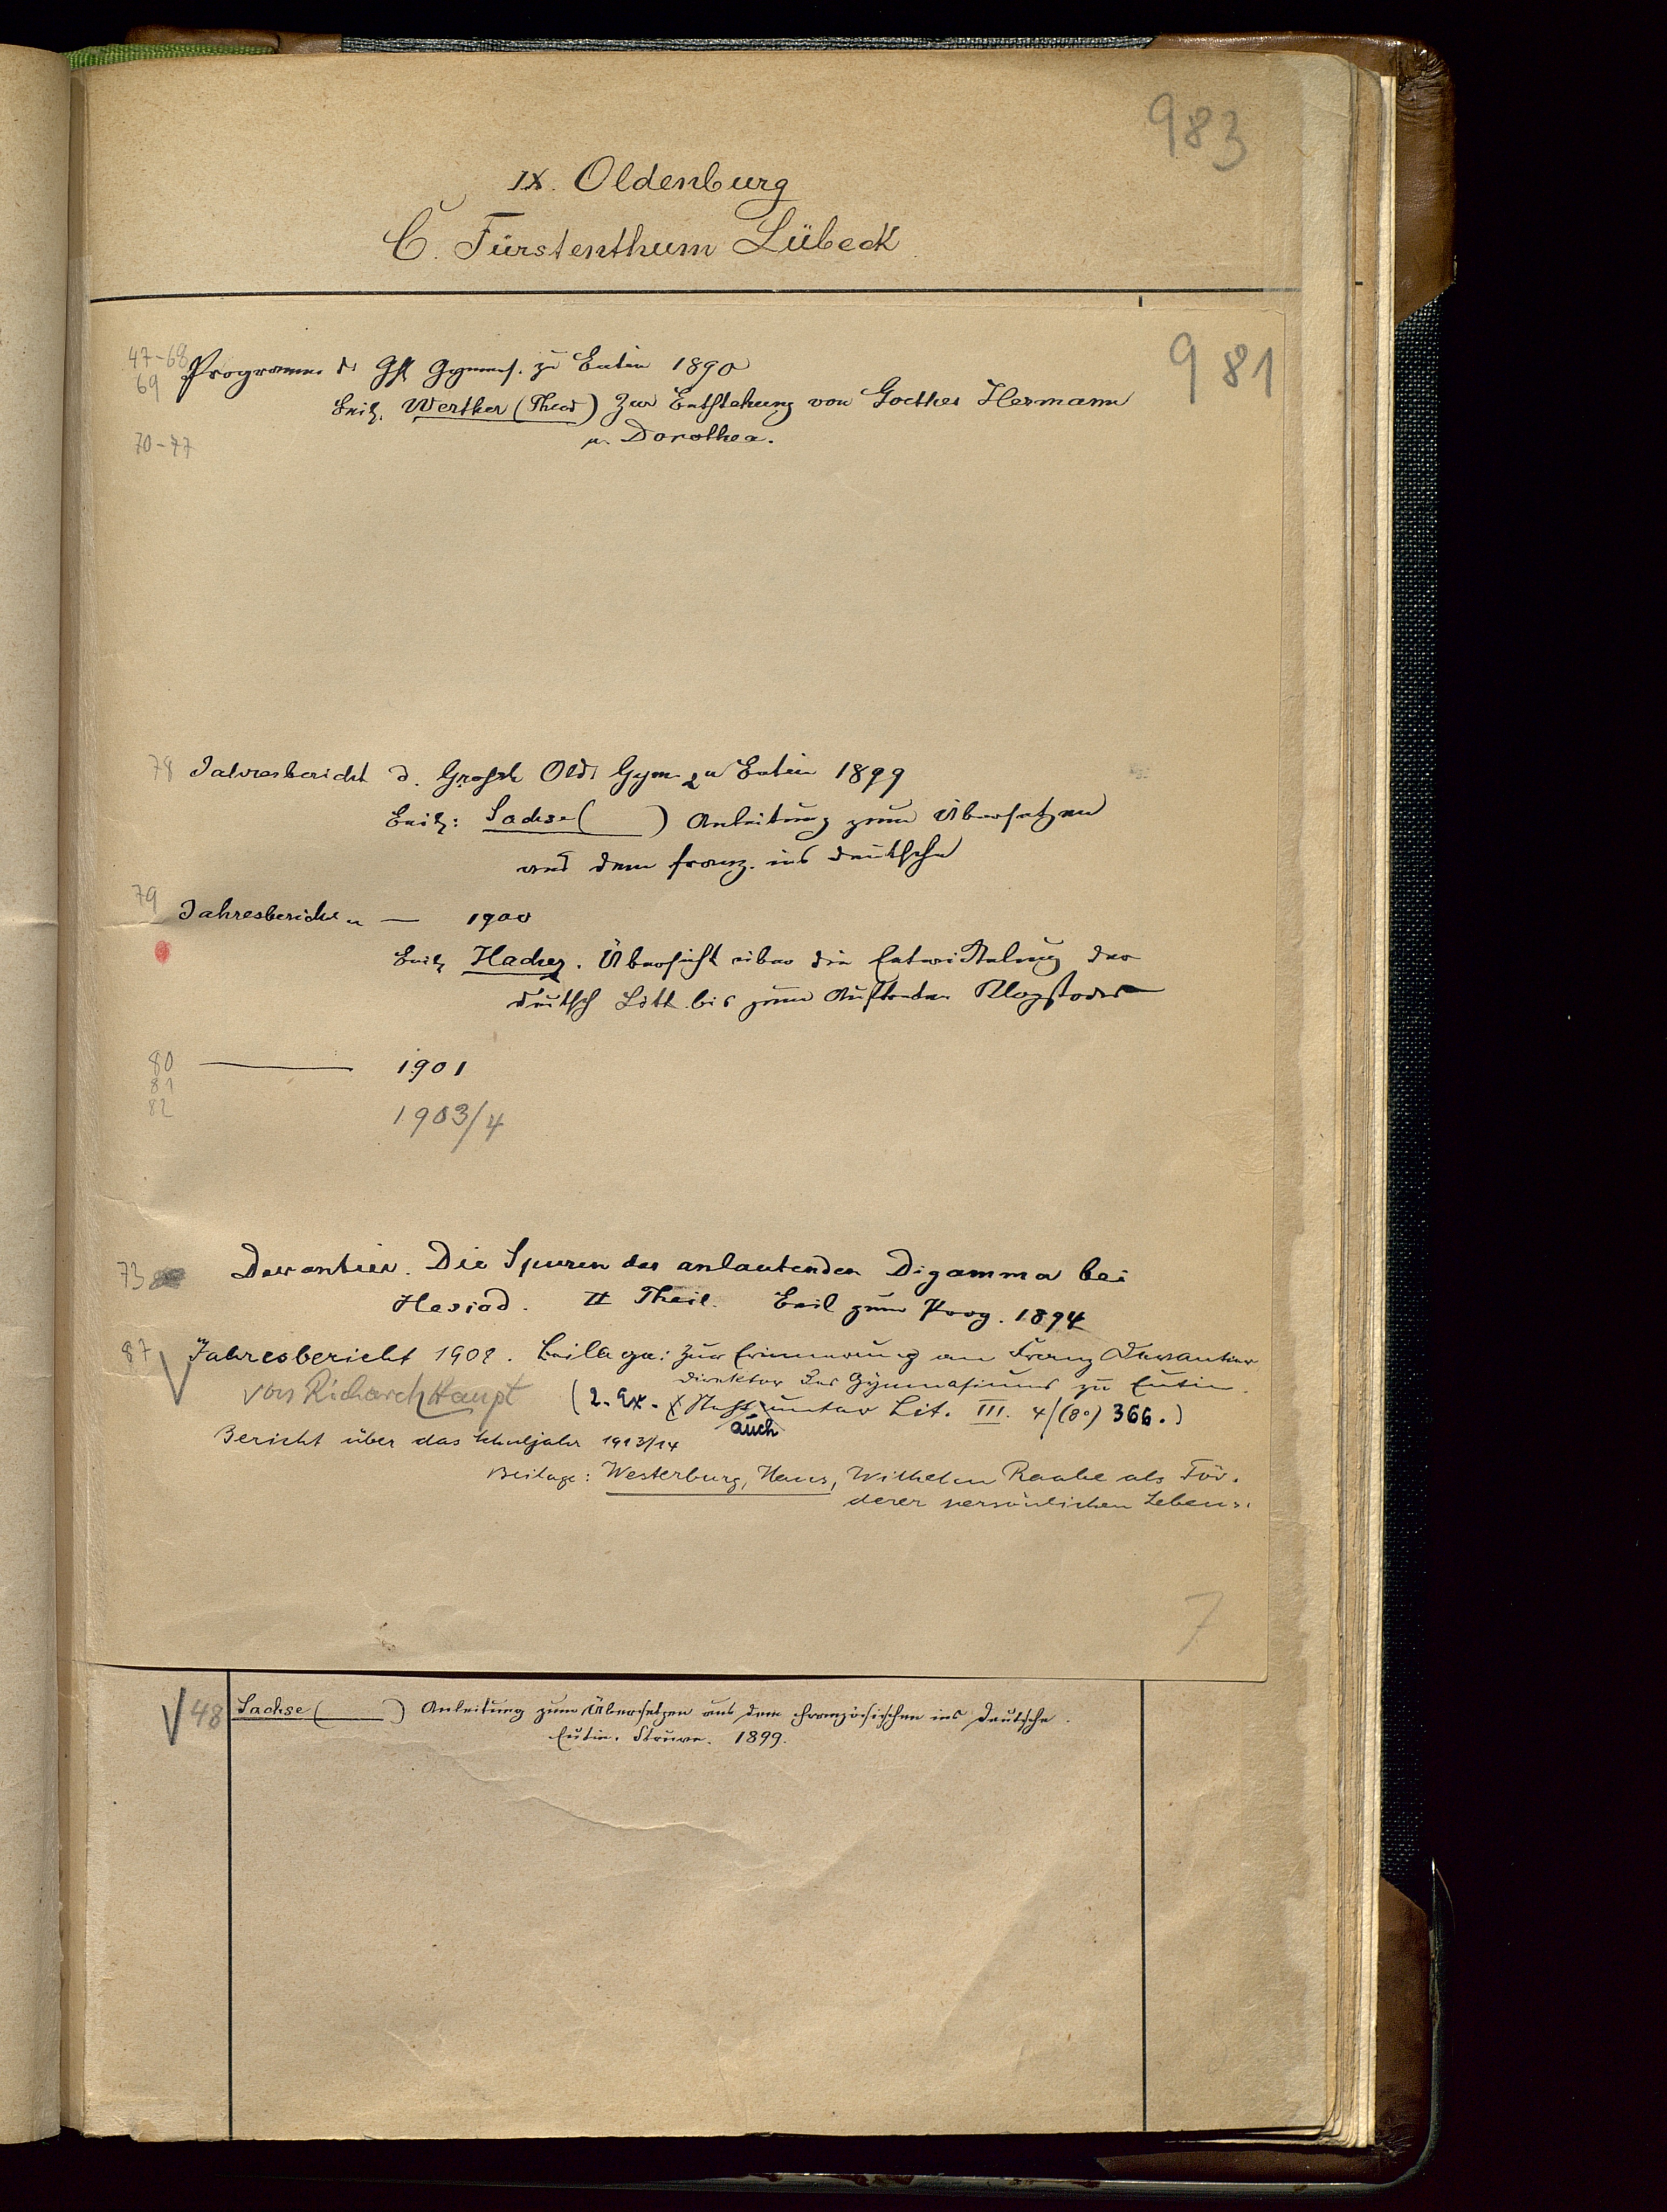 983
IX. Oldenburg
C. Fürstenthum Lübeck
981
47-68 Programm d. Gymnas. zu Eutin 1890
69 Beil. Werther (Theod) Zur Entstehung von Goethes Hermann
70-77 u. Dorothea.
78 Jahresbericht d. Grossh Old. Gym zu Eutin 1899
Beil: Sachse ( ) Anleitung zum Übersetzen
aus dem franz. ins Deutsche
79 Jahresbericht — 1900
Beil Hachez. Übersicht über die Entwickelung der
deutsch Litt. bis zum Auftreten Klopstocks
80 — 1901
81
82 1903/4
73 Devantier. Die Spuren des anlautenden Digamma bei
Hesiod. II Theil. Beil zum Prog. 1894
87 Jahresbericht 1908. Beilage: Zur Erinnerung an Franz Devantier
Direktor des Gymnasiums zu Eutin.
von Richard Haupt (2. Ex. steht unter Lit. III. 4/(8°) 366.)
auch
Bericht über das Schuljahr 1913/14
Beilage: Westerburg, Hans, Wilhelm Raabe als För-
derer persönlichen Lebens.
7
48 Sachse ( ) Anleitung zum Übersetzen aus dem Französischen ins Deutsche.
Eutin. Struve. 1899.